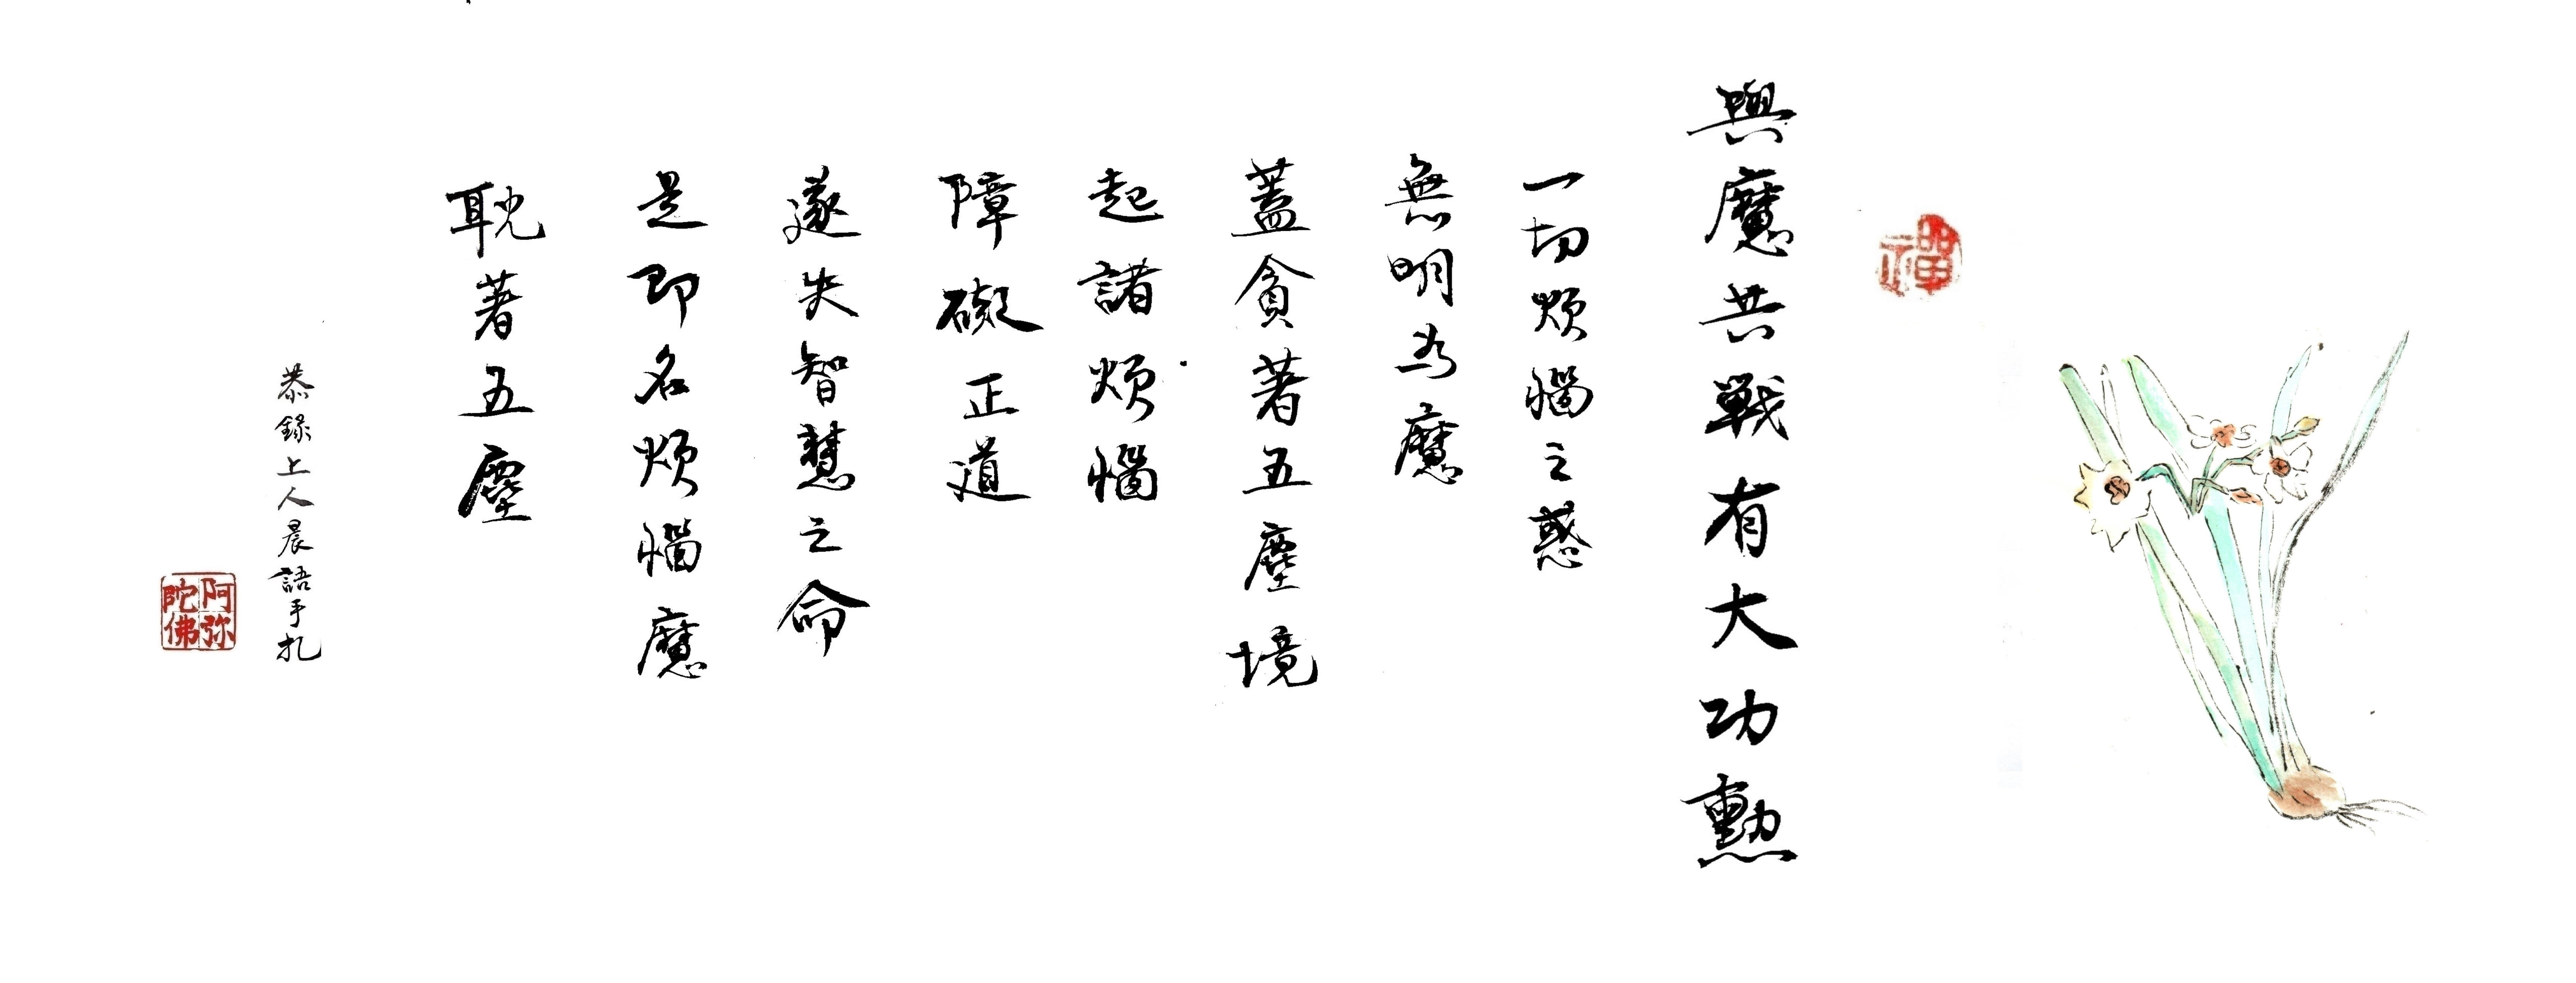 禪
與魔共戰有大功勳
一切煩惱之惑
無明為魔
蓋貪著五塵境
起諸煩惱
障礙正道
遂失智慧之命
是即名煩惱魔
耽著五塵
恭錄上人晨語手札
阿弥陀佛